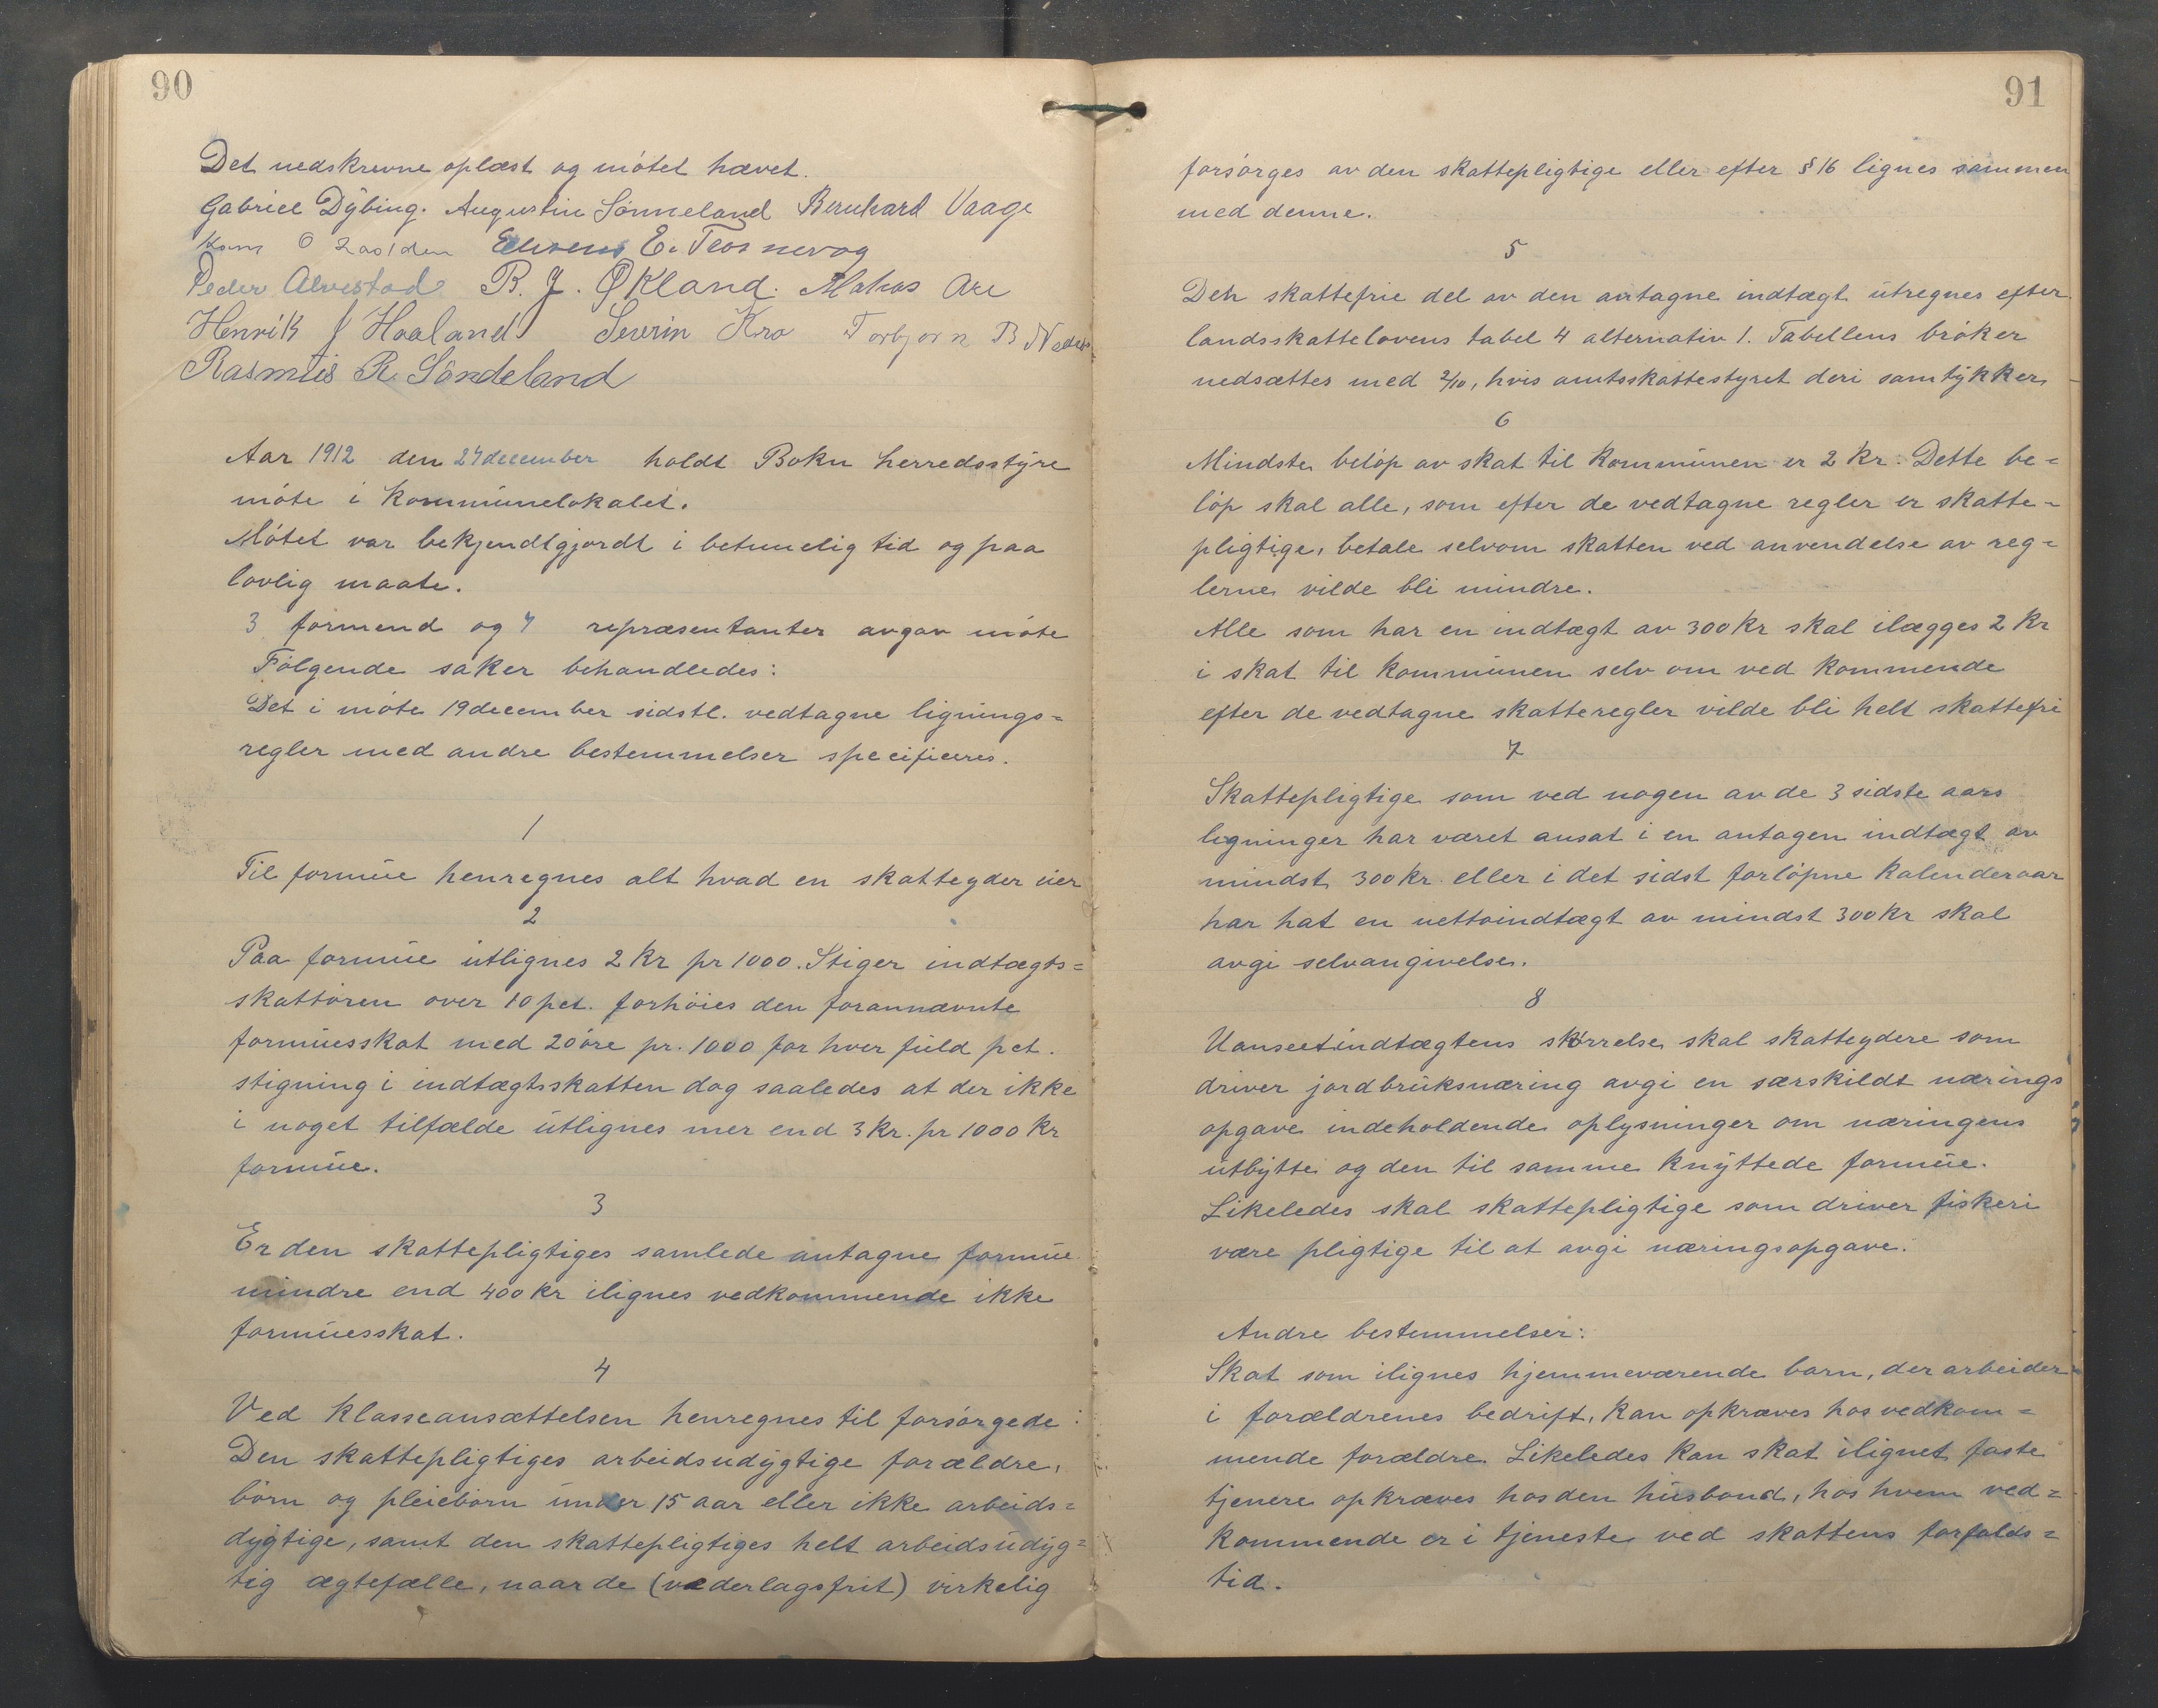 90
Det nedskrevne oplæst og mótet hævet.
Gabriel Dybing. Augustin Sønneland Bernhard Vaage
E. Trosnevag
Peder Alvestad R. J. Økland. Mahas Are
Henrik J Haaland Severin Kro Torbjørn B
Rasmus R. Søndeland
Aar 1912 den 27 december holdt Bokn herredsstyre
móte i kommunelokalet.
Mótet var bekjendtgjordt i betimelig tid og paa
lovlig maate.
3 formend og 7 repræsentanter avgav móte
Fólgende saker behandledes:
Det i móte 19 december sidstl. vedtagne lignings=
regler med andre bestemmelser specificeres.
1
Til formue henregnes alt hvad en skatteyder eier
2
Paa formue utlignes 2 kr pr 1000. Stiger indtægts=
skattóren over 10 pct. forhóies den forannævnte
formuesskat med 20 óre pr. 1000 for hver fuld pct.
stigning i indtægtsskatten dog saaledes at der ikke
i noget tilfælde utlignes mer end 3 kr. pr 1000 kr
formue.
3
Er den skattepligtiges samlede antagne formue
mindre end 400 kr ilignes vedkommende ikke
formuesskat.
4
Ved klasseansættelsen henregnes til forsórgede:
Den skattepligtiges arbeidsudygtige forældre,
bórn og pleiebórn under 15 aar eller ikke arbeids=
dygtige, samt den skattepligtiges helt arbeidsudyg=
tig ægtefælle, naar de (vederlagsfrit) virkelig
91
forsórges av den skattepligtige eller efter § 16 lignes sammen
med denne.
5
Den skattefrie del av den antagne indtægt utregnes efter
landsskattelovens tabel 4 alternativ 1. Tabellens bróker
nedsættes med 2/10, hvis amtsskattestyret deri samtykker
6
Mindste belóp av skat til kommunen er 2 kr. Dette be=
lóp skal alle, som efter de vedtagne regler er skatte=
pligtige, betale selvom skatten ved anvendelse av reg=
lerne vilde bli mindre.
Alle som har en indtægt av 300 kr skal ilægges 2 kr
i skat til kommunen selv om ved kommende
efter de vedtagne skatteregler vilde bli helt skattefri
7
Skattepligtige som ved nogen av de 3 sidste aars
ligninger har været ansat i en antagen indtægt av
mindst 300 kr. eller i det sidst forlópne kalenderaar
har hat en nettoindtægt av mindst 300 kr skal
avgi selvangivelse.
8
Uanseet indtægtens stórrelse skal skatteydere som
driver jordbruksnæring avgi en særskildt nærings
opgave indeholdende oplysninger om næringens
utbytte og den til samme knyttede formue.
Likeledes skal skattepligtige som driver fiskeri
være pligtige til at avgi næringsopgave.
Andre bestemmelser:
Skat som ilignes hjemmeværende barn, der arbeider
i forældrenes bedrift, kan opkræves hos vedkom=
mende forældre. Likeledes kan skat ilignet faste
tjenere opkræves hos den husbond, hos hvem ved=
kommende er i tjeneste ved skattens forfalds=
tid.